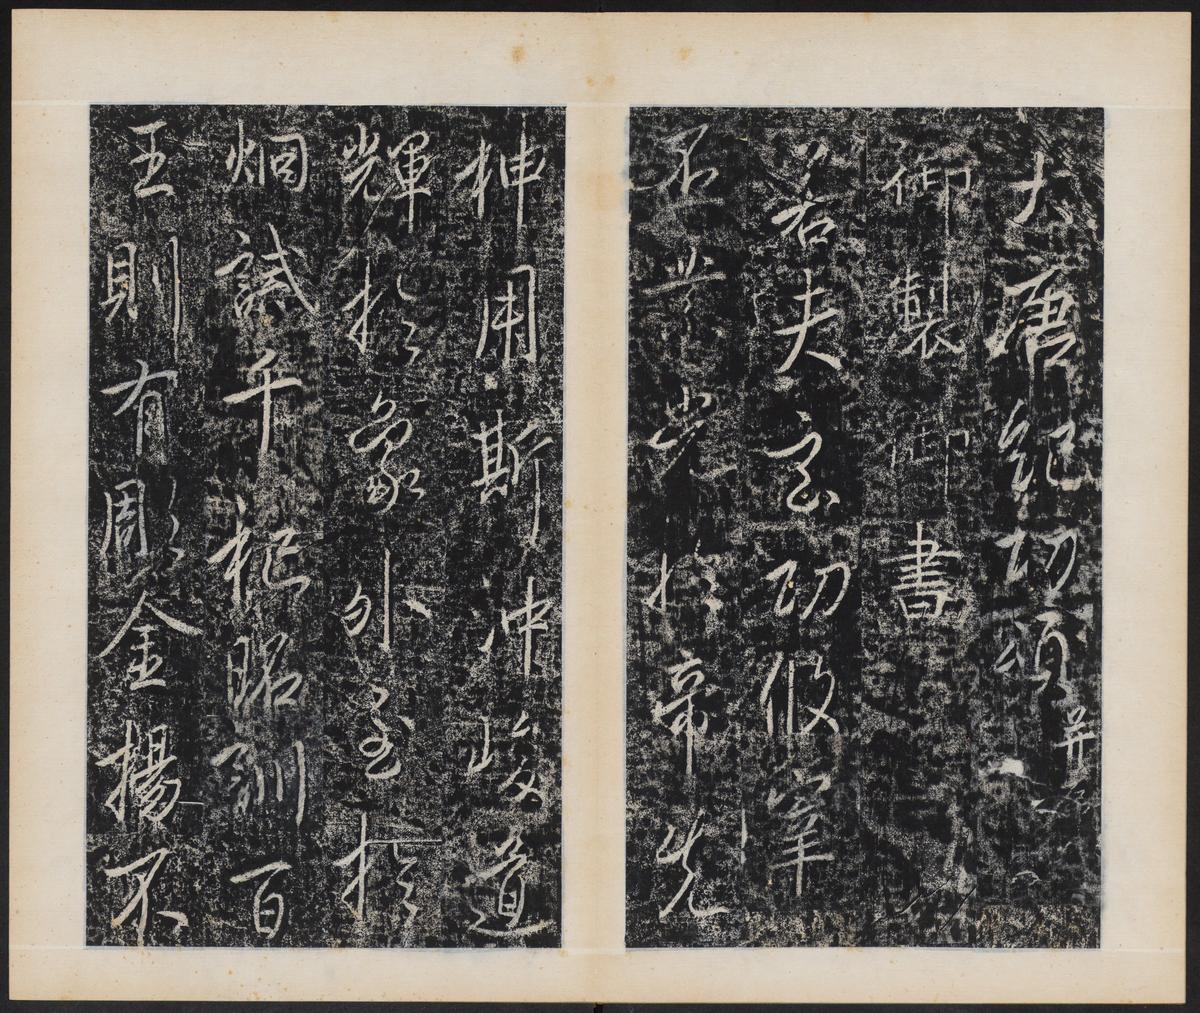 大唐紀功頌并序
御製御書
若夫玄功攸宰
丕業光於帝先
神用斯沖峻道
輝於象外至於
烱誡千祀昭訓百
王則有彫金揚不